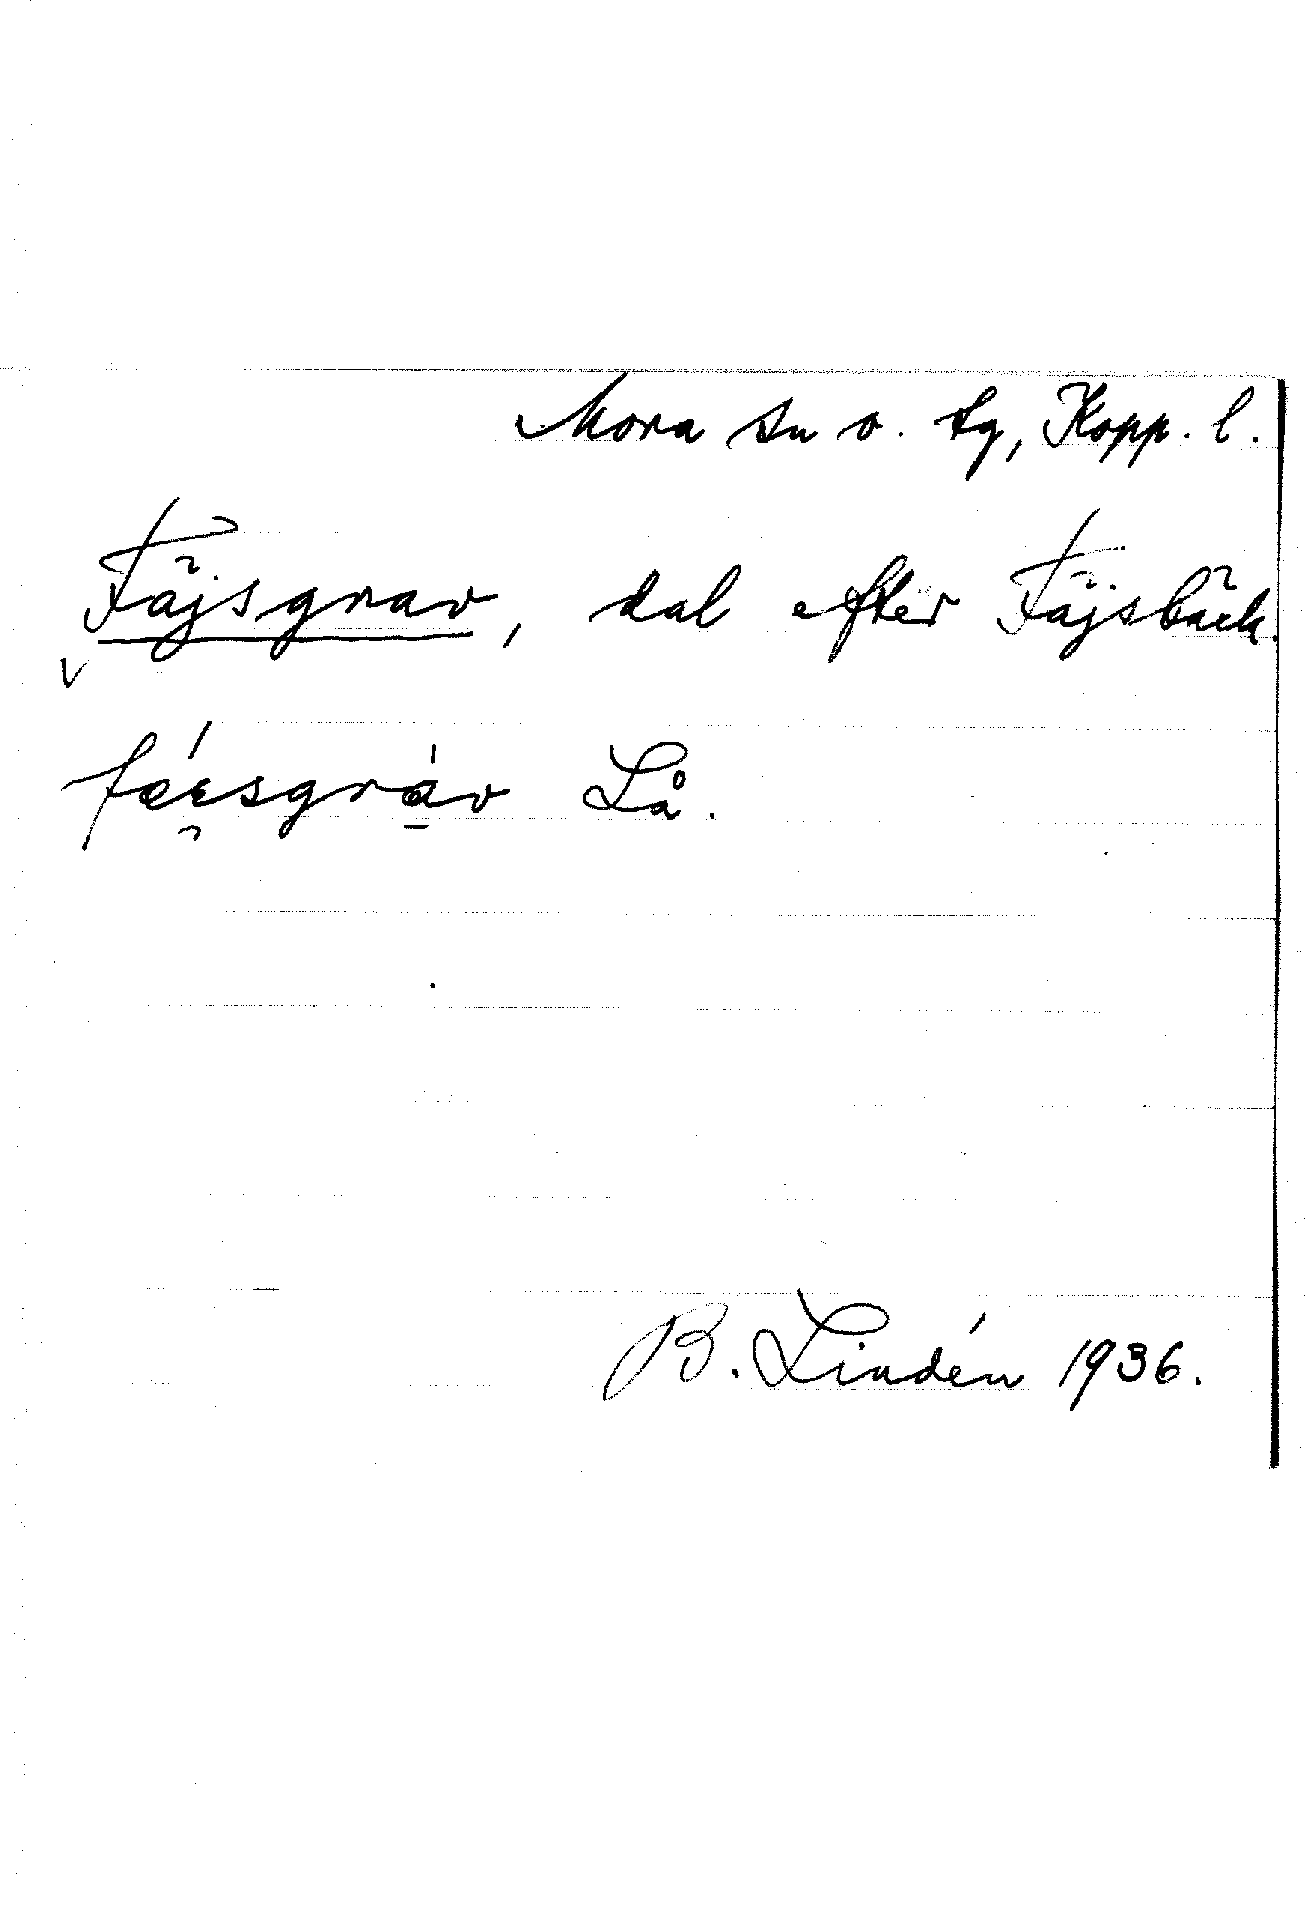 Mora sn o. tg, Kopp. l.
Fäjsgrav, dal efter Fäjsbäck.
v
Lå.
B. Lindén 1936.